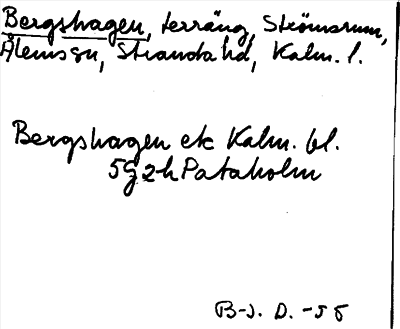 Bergshagen, terräng, Strömsrum,
Ålems sn, Stranda hd, Kalm. l.
Bergshagen ek Kalm. bl.
5G 2h Pataholm
B-J. D. -58